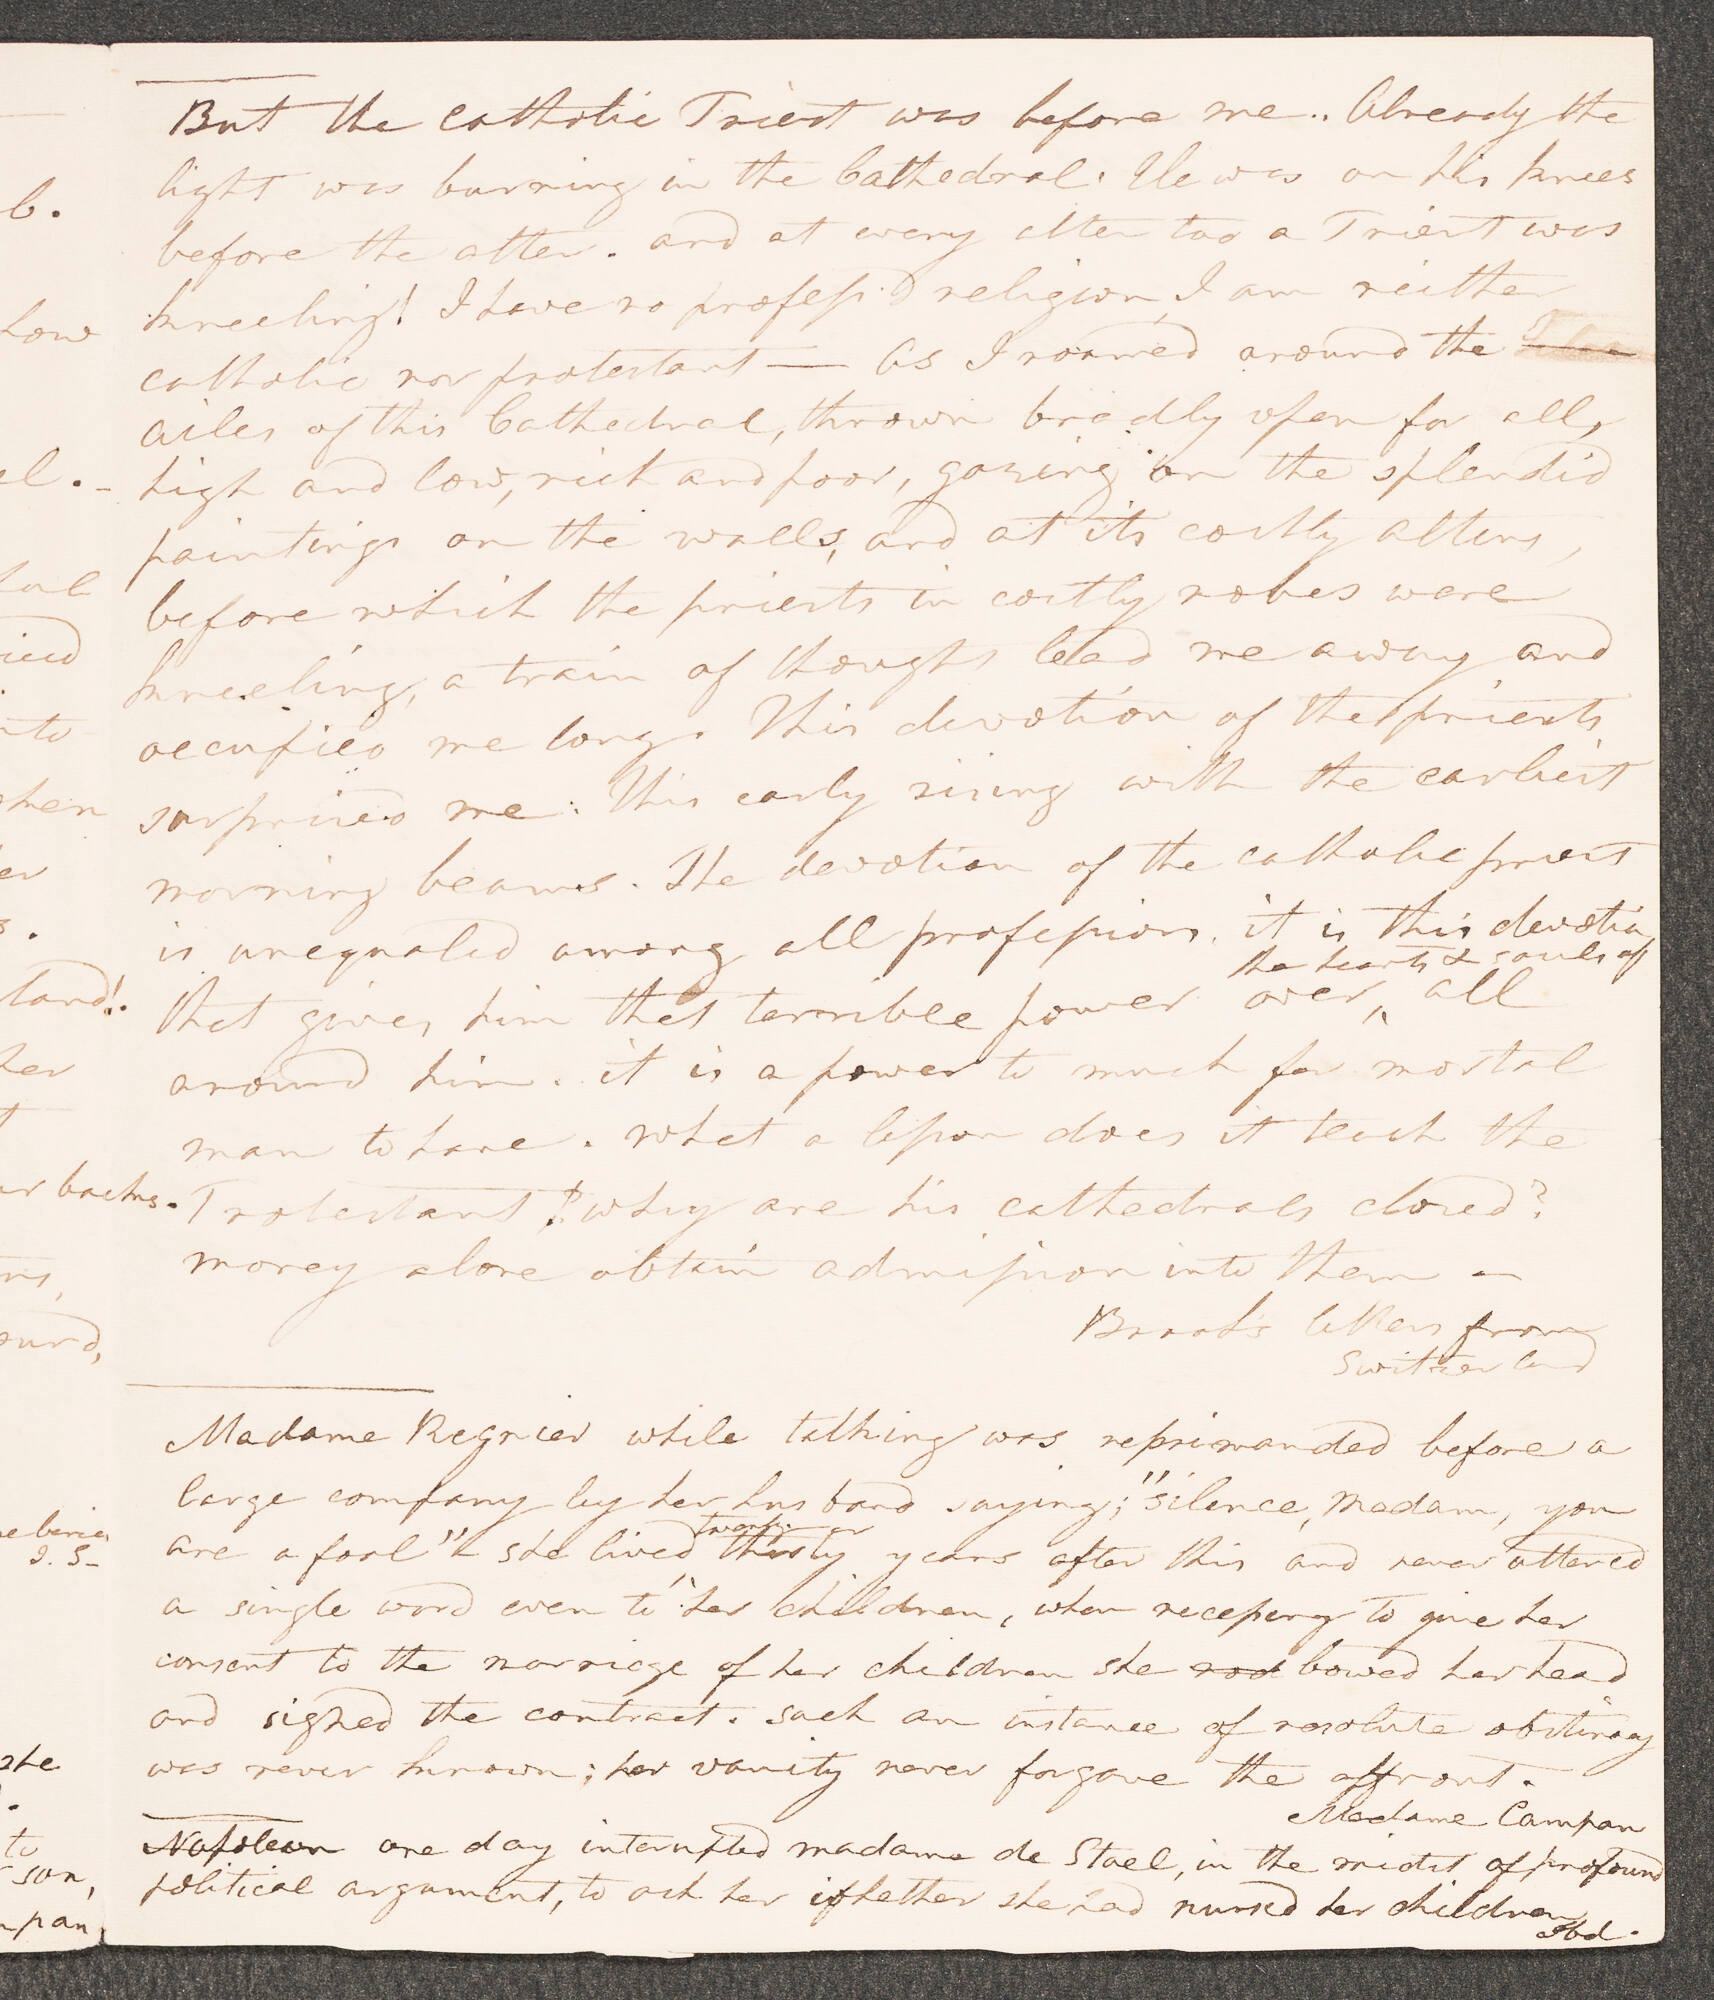 But the catholic Priest was before me.. Already the
light was burning in the Cathedral. He was on his knees
before the alter. and at every alter too a Priest was
kneeling! I have no profess'd religion, I am neither
catholic nor protestant — As I roamed around the
ailes of this Cathedral, thrown broadly open for all,
high and low, rich and poor, gazing on the splendid
paintings on the walls, and at its costly alters,
before which the priests in costly robes were
kneeling, a train of thoughts lead me away and
occupied me long. This devotion of the priests
surprised me. This early rising with the earliest
morning beams. The devotion of the catholic priest
is unequaled among all professions. it is this devotion
the hearts & souls of
that gives him that terrible power over, all
around him. it is a power to much for mortal
man to have. What a lesson does it teach the
Protestant! why are his cathedrals closed?
money alone obtain admission into them —
letters from
Switzerland
Madame Regnier while talking was reprimanded before a
large company by her husband saying; "silence, Madam, you
are a fool" & she lived twenty thirty years after this and never uttered
a single word even to her children, when necessary to give her
consent to the marriage of her children she nod bowed her head
and signed the contract. Such an instance of resolute obstinacy
was never known; her vanity never forgave the affront.
Madame Campan
Napoleon one day interupted madame de Stael, in the midst of profound
political argument, to ask her whether she had nursed her children
Ibd.
b.
how
el. -
nto
when
er
land!.
her
backs.
ound,
I. S-
she
to
son,
mpan